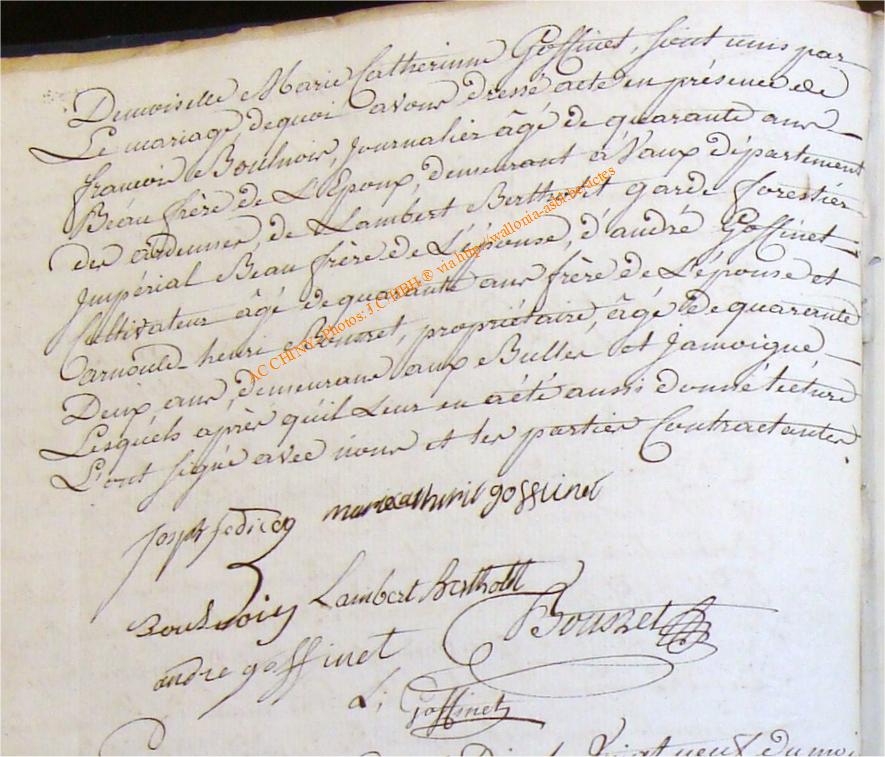 Demoiselle Marie Catherinne Goffinet, sont unis par
Le mariage, dequoi avons dressé acte en présence de
françois Boulnois, Journalier âgé de quarante ans
Beau frère de L'Epoux, demeurant à Vaux département
des ardennes, de Lambert Bertholet garde forestier
Impérial Beau frère de L'épouse, d'andré Goffinet
Cultivateur âgé de quarante ans frère de L'épouse et
arnould-henri Bousret, propriétaire, âgé de quarante
Deux ans, demeurans aux Bulles et Jamoigne
Lesquels après qu'il Leur en a été aussi donné lécture
L'ont signé avec nous et les parties Contractantes.
AC CHINY - Photos: J.C. HBH ® via http://wallonia-asbl.be/actes
Joseph marie catherine goffinet
Boulnois Lambert Bertholet
Bousret
andre goffinet
Goffinet
Vingt neuf du mois